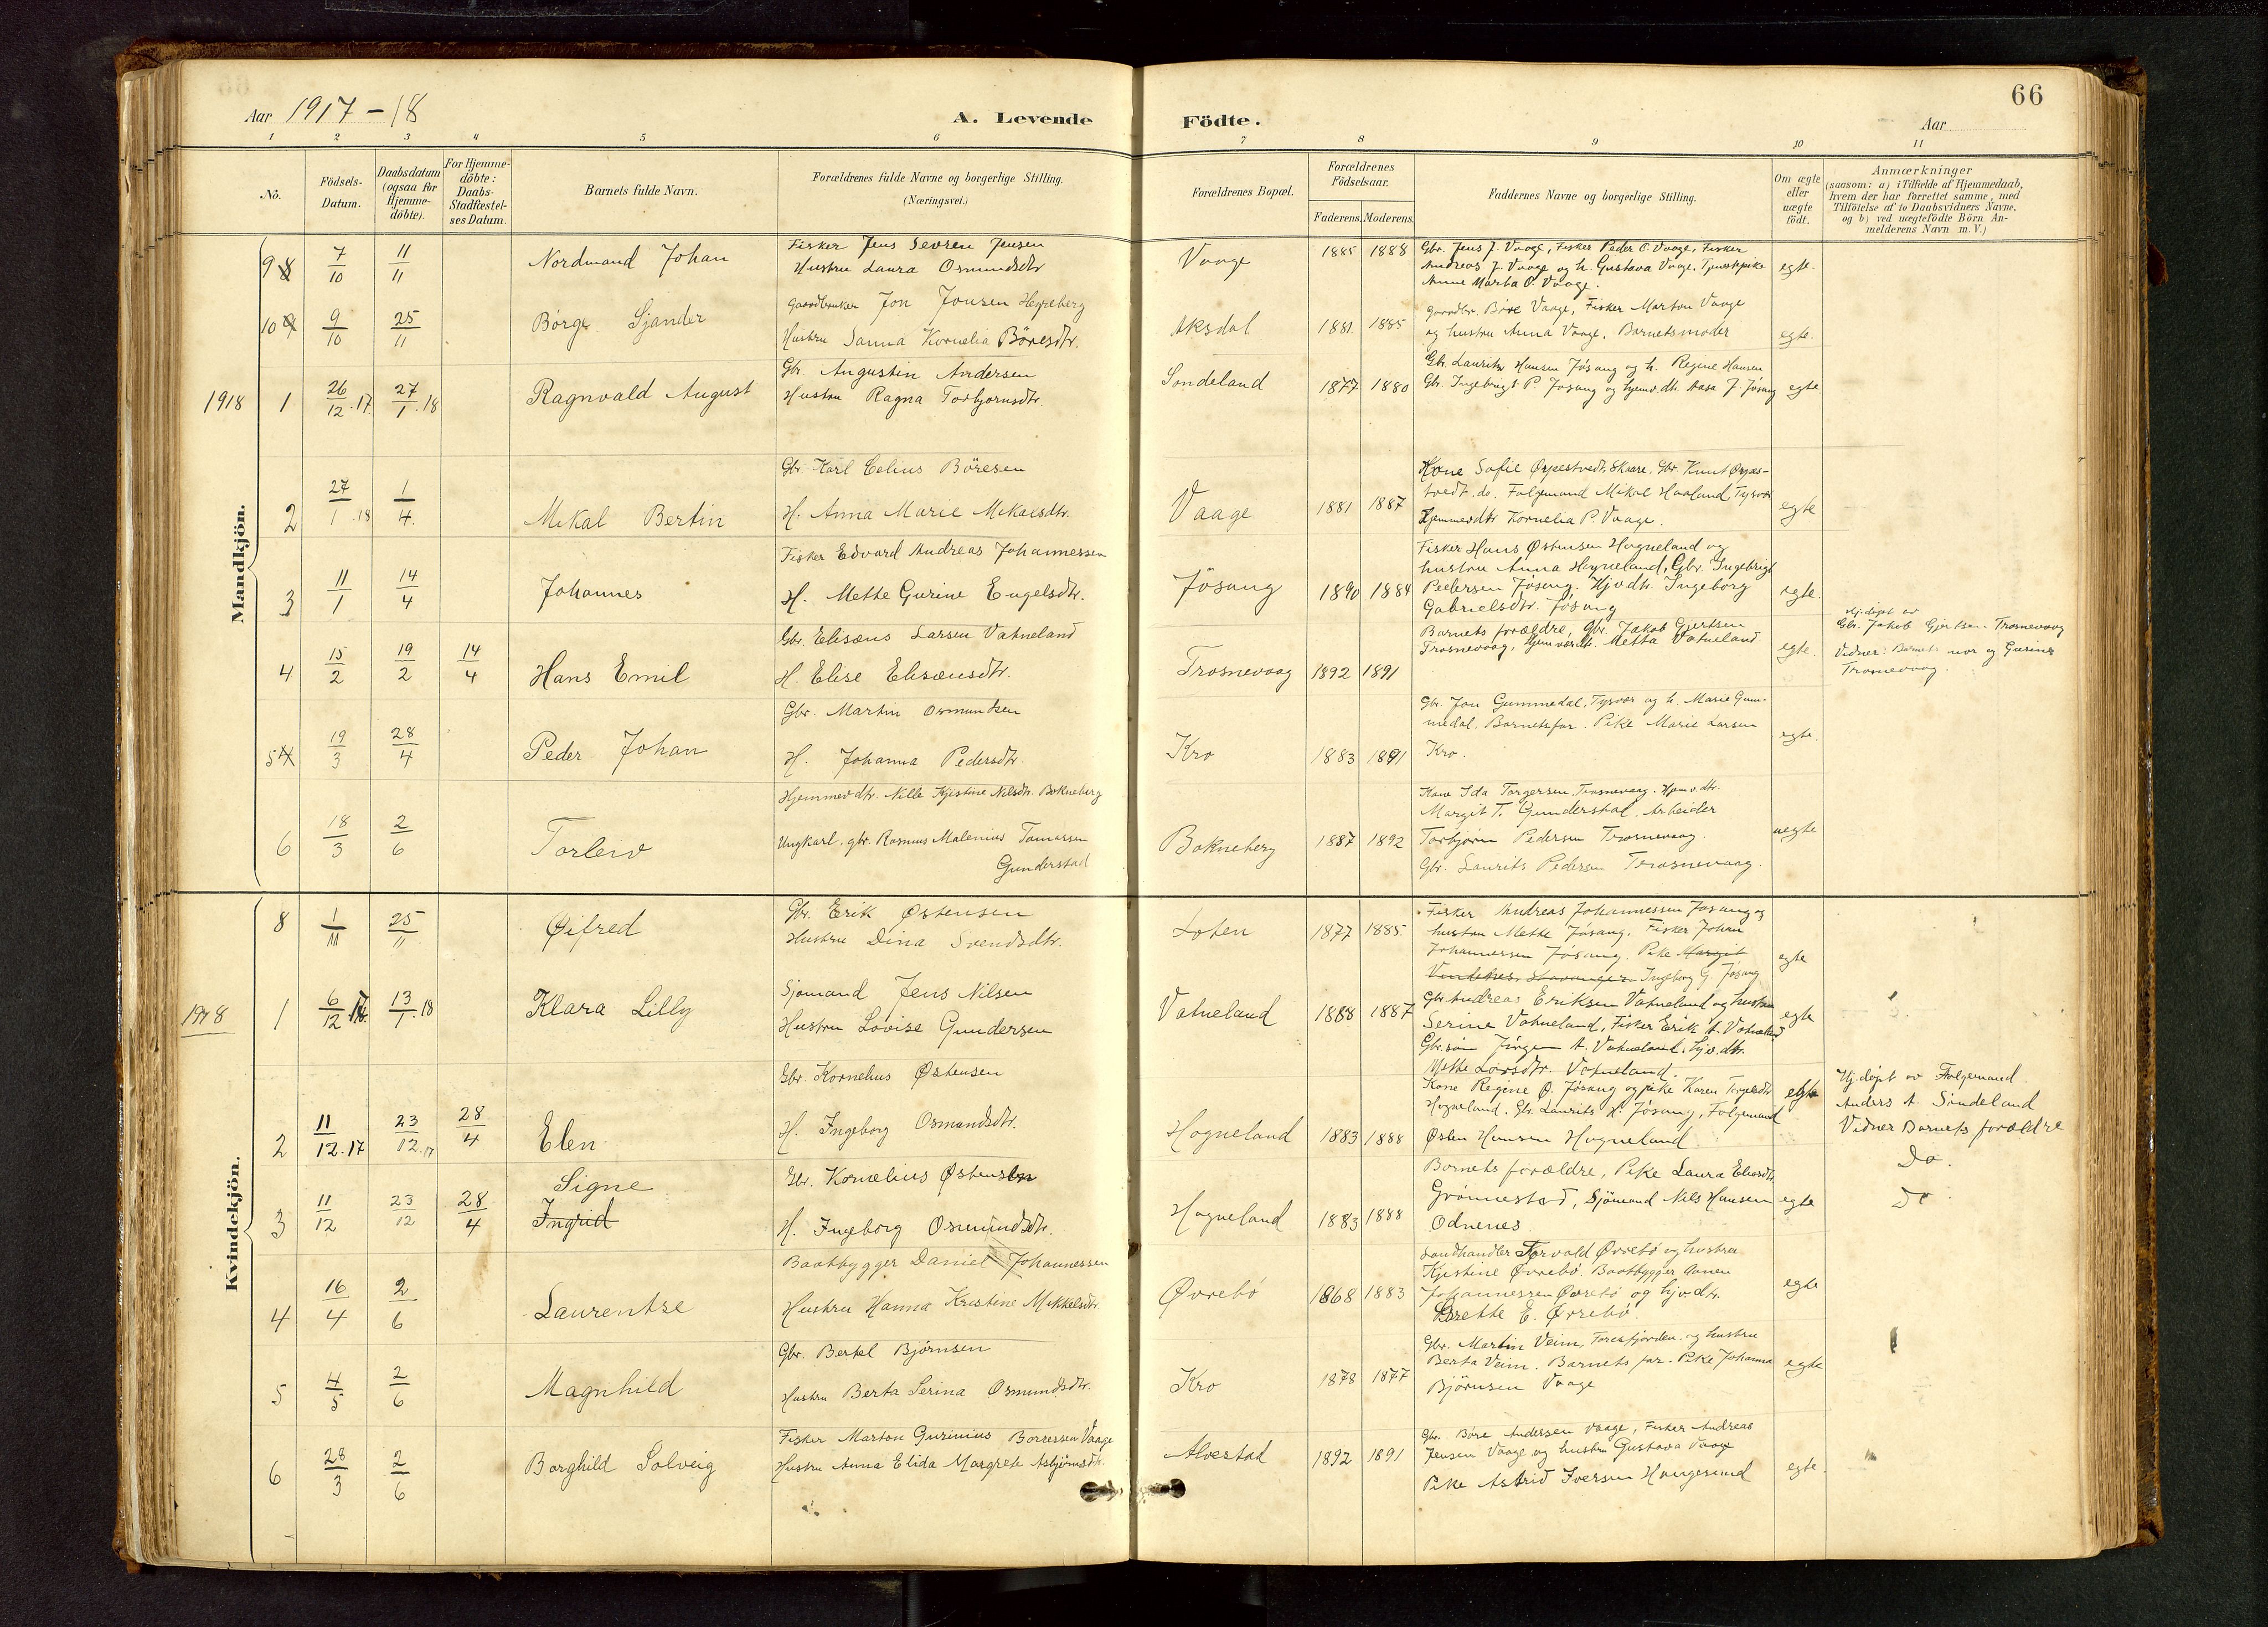 66
Aar 1917-18
A. Levende Födte.
Aar
1 2 3 4 5 6 7 8 9 10 11
No.
Födsels-Datum.
Daabsdatum (ogsaa for Hjemme-döbte).
For Hjemme-döbte: Daabs-Stadfæstel-ses Datum.
Barnets fulde Navn.
Forældrenes fulde Navne og borgerlige Stilling.
(Næringsvei.)
Forældrenes Bopæl.
Forældrenes Födselsaar.
Faderens. Moderens.
Faddernes Navne og borgerlige Stilling.
Om ægte eller uægte födt.
Anmærkninger
(saasom: a) i Tilfælde af Hjemmedaab,
hvem der har forrettet samme, med
Tilföielse af to Daabsvidners Navne.
og b) ved uægtefödte Börn An-
melderens Navn m. V.)
Mandkjön.
9 8 7/10 11/11 Nordmand Johan
Fisker Jens Sevren Jensen
Hustru Laura Osmundsdtr
Vaage 1885 1888
Gbr. Jens J. Vaage, Fisker Peder O. Vaage, Fisker
Andreas J. Vaage og h. Gustava Vaage. Tjenestepike
Anne Marta O. Vaage.
egte.
10 9 9/10 25/11 Börge Sjander
Gaardbruker Jon Jonsen
Hustru Sanna Kornelia Böresdtr.
Aksdal 1881 1885
Gaardbr. Böre Vaage, Fisker Marton Vaage
og hustru Anna Vaage. Barnetsmoder
egte.
1918 1 26/12.17 27/1.18 Ragnvald August
Gbr. Augustin Andersen
Hustru Ragna Torbjornsdtr.
Sondeland 1877 1880
Gbr. Laurits Hansen Jösang og h. Regine Hansen
Gbr. Ingebrigt P. Jösang og hjemv.dtr. Aasa J. Jösang
egte
2 27/1.18 1/4 Mikal Bertin
Gbr. Karl Celius Böresen
H. Anna Marie Mikalsdtr.
Vaage 1881 1887
Kone Sofie Ørpestvedt. Skaare. Gbr. Knut Ørpes-
tvedt. do. Folgemand Mikal Haaland, Tysvær
Hjemmevdtr Kornelia P. Vaage.
egte
3 11/1 14/4 Johannes
Fisker Edvard Andreas Johannessen
H. Mette Gurine Engelsdtr.
Jösang 1890 1884
Fisker Hans Østensen Hogneland og
hustru Anna Hogneland, Gbr. Ingebrigt
Pedersen Jösang. Hjvdtr. Ingeborg
Gabrielsdtr. Jösang
egte.
4 15/2 19/2 14/4 Hans Emil
Gbr. Elisæus Larsen Vatneland
H. Elise Elisæusdtr.
Trosnevaag 1892 1891
Barnets forældre, Gbr. Jakob Gjertsen
Trosnevaag, Hjemværdtr. Metta Vatneland.
egte.
Hj.döpt av
Gbr. Jakob Gjertsen Trosnevaag
Vidner: Barnets mor og Gurine
Trosnevaag.
5 4 19/3 28/4 Peder Johan
Gbr. Martin Osmundsen
H. Johanna Pedersdtr.
Kro 1883 1891
Gbr. Jon Gummedal, Tysvær og h. Marie Gum-
medal. Barnetsfar. Pike Marie Larsen
Kro.
egte.
6 18/3 2/6 Torleiv
Hjemmevdtr. Nille Kjistine Nilsdtr. Bokneberg
Ungkarl, gbr. Rasmus Malenius Tomassen
Gunderstad
Bokneberg 1887 1892
Kone Ida Torgersen, Trosnevaag. Hjemv.dtr.
Margit T. Gunderstad, Arbeider
Torbjörn Pedersen Trosnevaag.
Gbr. Laurits Pedersen Trosnevaag.
uegte
Kvindekjön.
8 1/11 25/11 Øifred
Gbr. Erik Østensen
Hustru Dina Svendsdtr.
Loten 1877 1885.
Fisker Andreas Johannessen Jösang og
hustru Mette Jösang. Fisker Johan
Johannessen Jösang. Pike Margit
Vindenes Stavanger Ingeborg G. Jösang
egte
1918 1 6/12.17. 13/1.18 Klara Lilly
Sjømand Jens Nilsen
Hustru Lovise Gundersen
Vatneland 1888 1887
Gbr. Andreas Eriksen Vatneland og hustru
Serine Vatneland, Fisker Erik A. Vatneland
Gbr.søn Jörgen A. Vatneland, hjv.dtr.
Mette Larsdtr. Vatneland.
egte
2 11/12.17 23/12.17 28/4 Elen
Gbr. Kornelius Østensen
H. Ingeborg Osmundsdtr.
Hogneland 1883 1888
Kone Regine Ø. Jösang og pike Karen
Hogneland. Gbr. Laurits H. Jösang, Folgemand
Østen Hansen Hogneland
egte
Hj.döpt av Folgemand
Anders A. Sindeland
Vidner Barnets forældre
Do.
3 11/12 23/12 28/4 Signe
Ingrid
Gbr. Kornelius Østensen
H. Ingeborg Osmundsdtr.
Hogneland 1883 1888
Barnets forældre, Pike Laura Eliasdtr.
Grönnestad, Sjömand Nils Hansen
Odnenes
egte
Do
4 16/4 2/6 Laurentse
Baatbygger Daniel Johannessen
Hustru Hanna Kristine Mikkelsdtr.
Øvrebö 1868 1883
Landhandler Torvald Øvrebö og hustru
Kjistine Øvrebö. Baatbygger
Johannessen Øvrebö og hjvdtr.
Lorette E. Øvrebö
egte
5 4/5 2/6 Magnhild
Gbr. Bertel Bjørnsen
Hustru Berta Serina Osmundsdtr.
Kro 1878 1877
Gbr. Martin Veim, Foresfjorden. og hustru
Berta Veim. Barnets far. Pike Johanna
Bjørnsen Vaage
egte
6 28/3 2/6 Borghild Solveig
Fisker Marton Gurinius Börresen Vaage
Hustru Anna Elida Margrete Asbjörnsdtr.
Alvestad 1892 1891
Gbr. Böre Andersen Vaage, Fisker Andreas
Jensen Vaage og hustru Gustava Vaage
Pike Astrid Iversen Haugesund
egte.